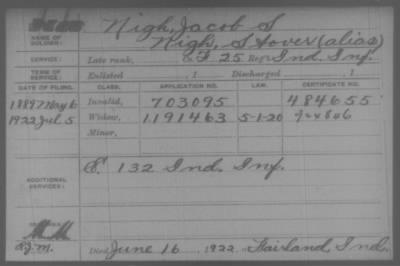 NAME OF SOLDIER: Nigh, Jacob S
Nigh, Stover (alias)
SERVICE: Late rank, Co. F. 25 Reg't Ind. Inf.
TERM OF SERVICE: Enlisted , 1 Discharged , 1
DATE OF FILING. CLASS. APPLICATION NO. LAW. CERTIFICATE NO.
1889 May 6 Invalid, 703095 484655
1922 Jul 5 Widow, 1191463 5-1-20
Minor,
ADDITIONAL SERVICES: E. 132 Ind. Inf.
Died June 16, 1922 Fairland, Ind.